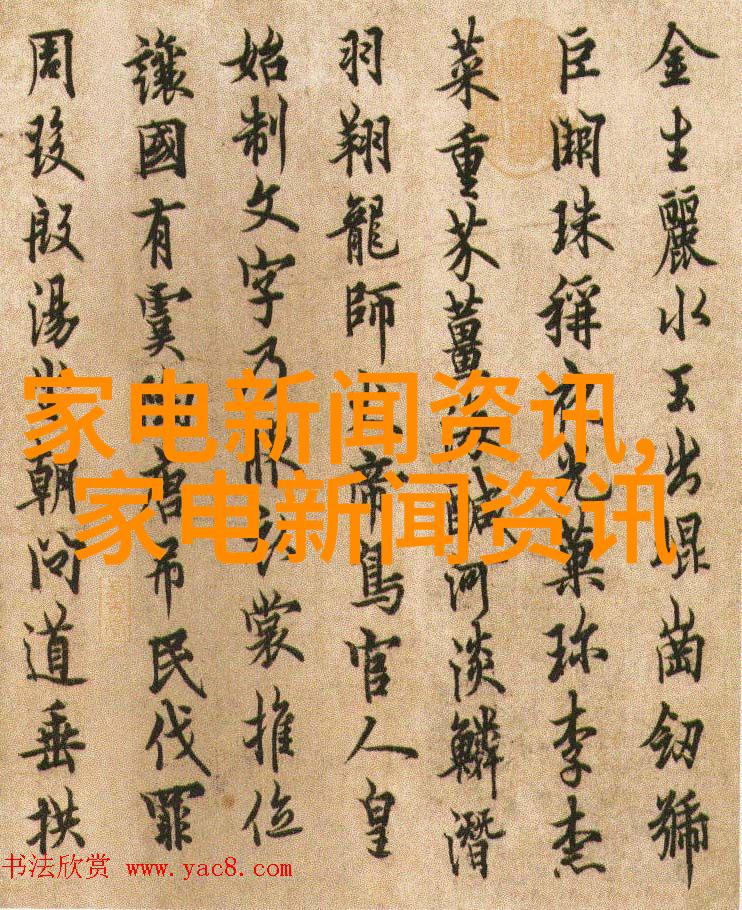 金生麗水玉出崐崗劒號
巨闕珠稱夜光菓珎李柰
菜重芥薑海醎河淡鱗潛
羽翔龍師火帝鳥官人皇
始制文字乃服衣裳推位
讓國有虞陶唐弔民伐罪
周發殷湯坐朝問道垂拱
家电新闻资讯,
家电新闻资讯
书法欣赏 www.yac8.com